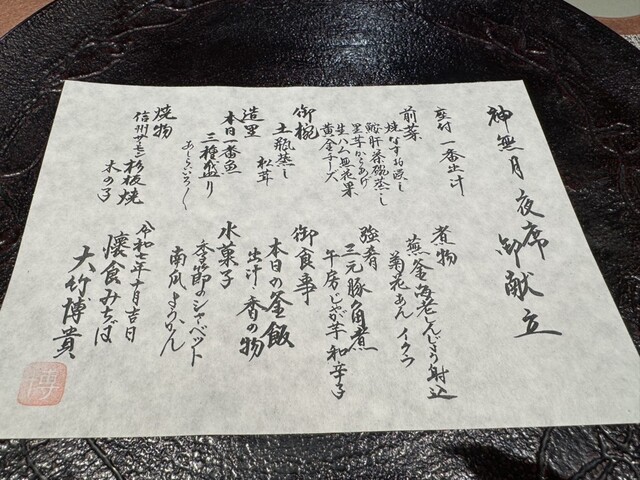 神無月 夜席
御献立
座付 一番出汁
前菜
焼なす お浸し
鮟肝茶碗蒸し
里芋からあげ
生ハム無花果
黄金チーズ
御椀
土瓶蒸し
松茸
造里
本日一番魚
三種盛り
あしらいろ〳〵
焼物
信州サーモン杉板焼
木の子
煮物
蕪釜 海老しんじょう射込
菊花あん イクラ
強肴
三元豚角煮
午房 じゃが芋 和辛子
御食事
本日の釜飯
出汁 香の物
水菓子
季節のシャーベット
南瓜ようかん
令和七年十月吉日
懐食みちば
大竹博貴
博